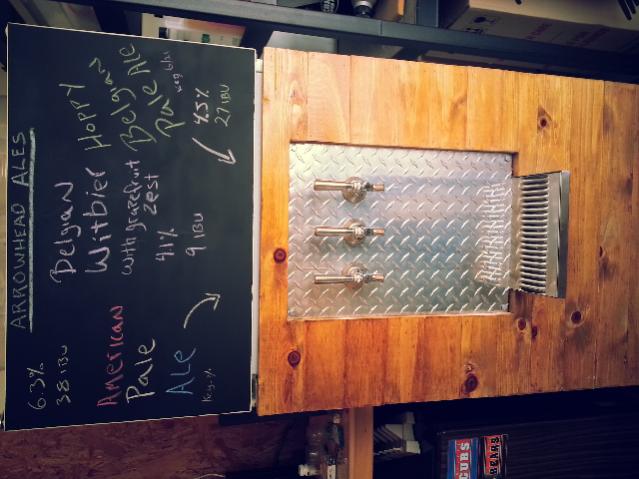 ARROWHEAD ALES
6.3%
38 IBU
AMERICAN
Pale
Ale
Belgian
Witbier
with grapefruit
zest
4.1%
9 IBU
HOPPY
Belgian
Pale Ale
4.5%
27 IBU
CUBS
BEARS